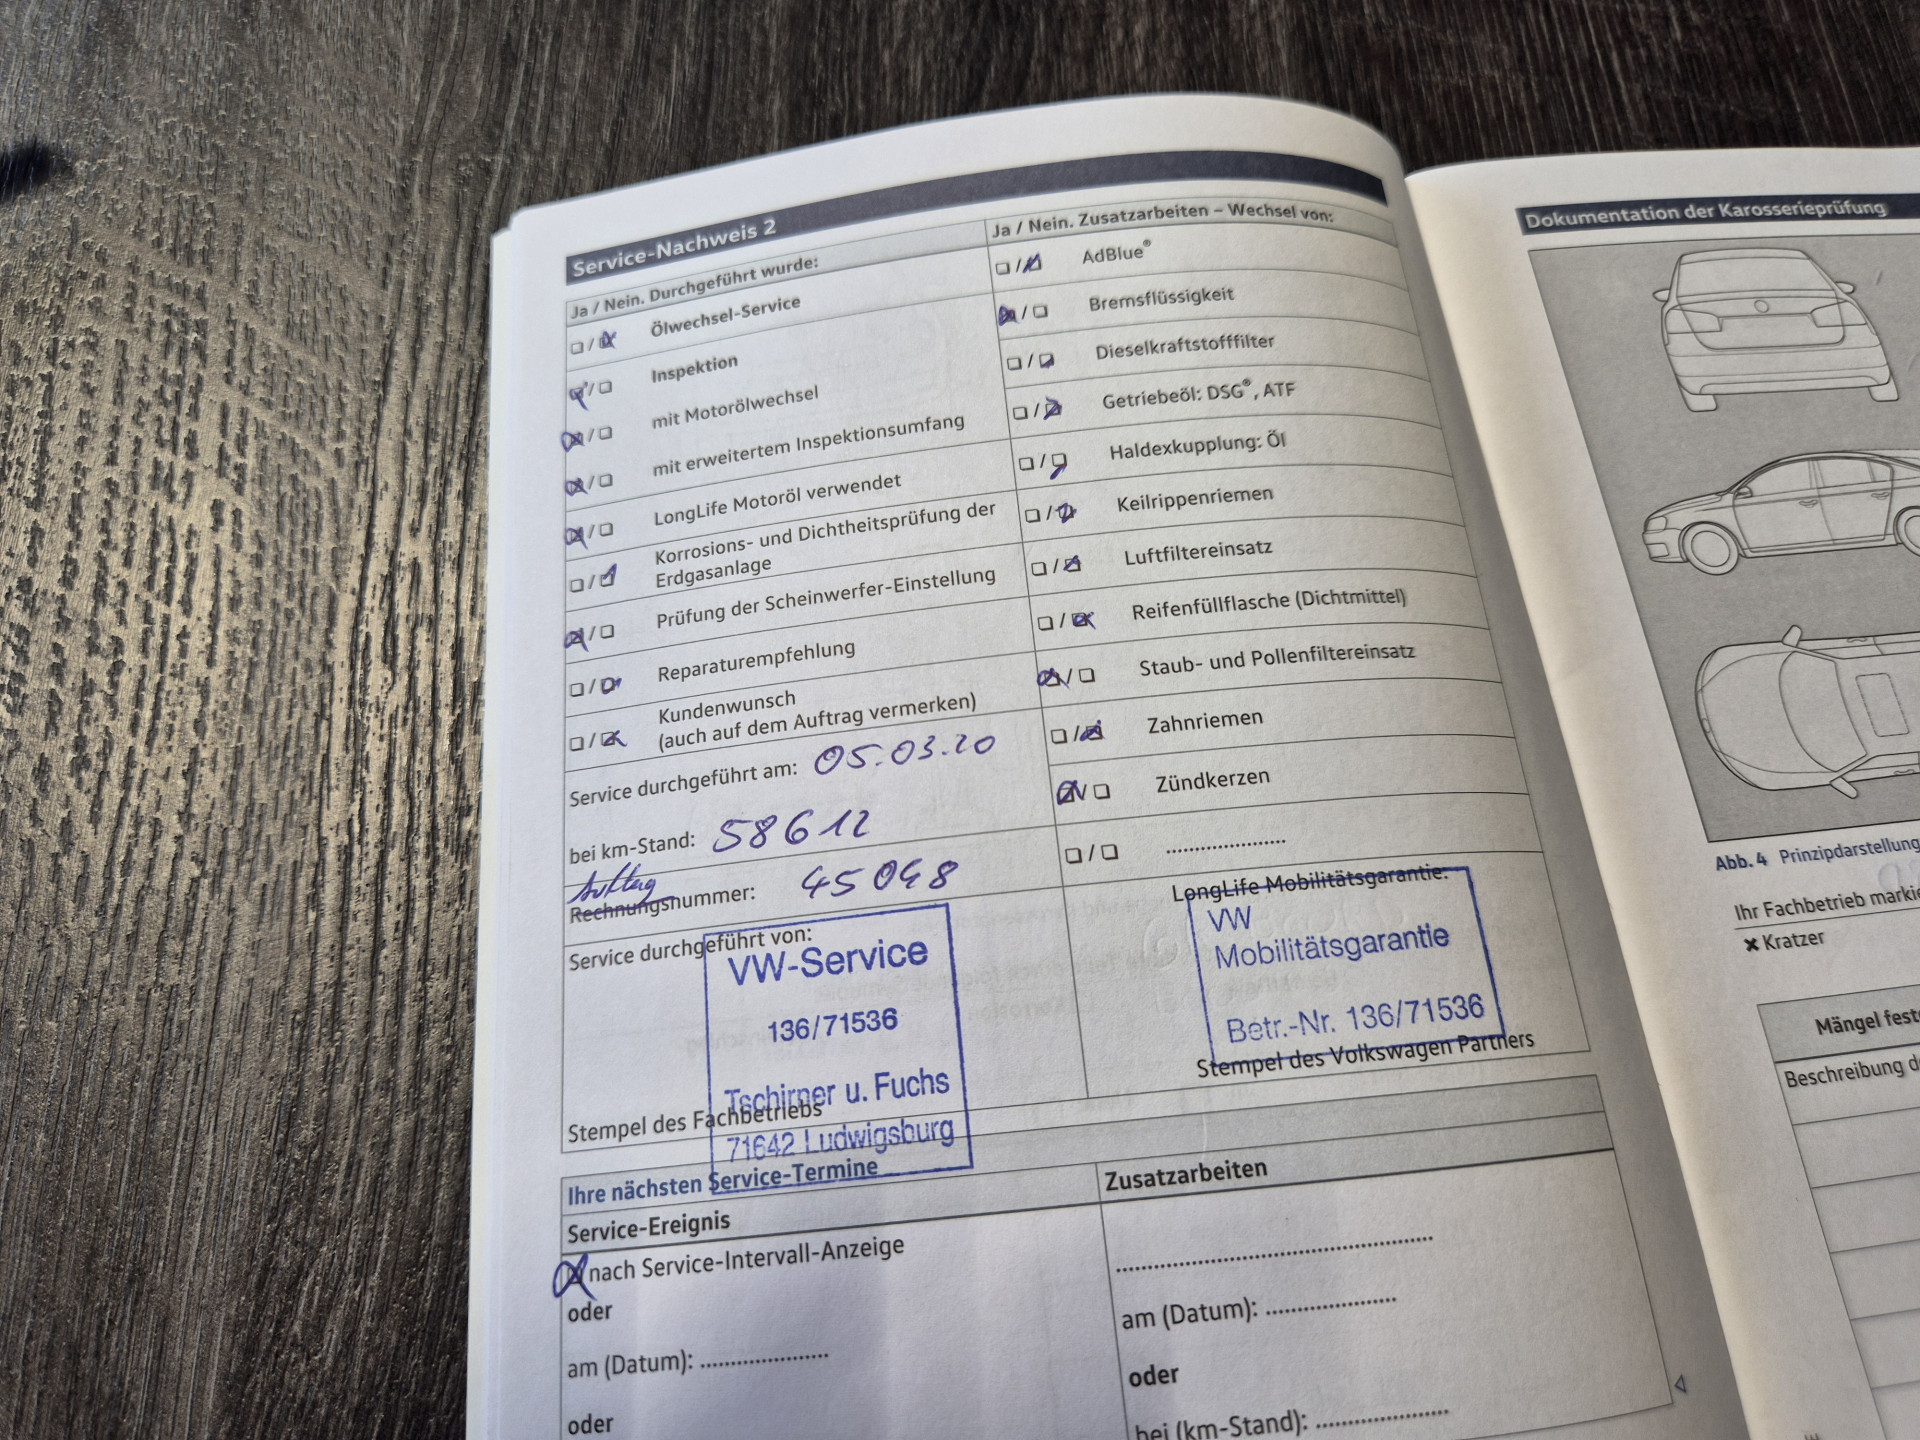 Service-Nachweis 2
Ja / Nein. Durchgeführt wurde:
Ölwechsel-Service
Inspektion
mit Motorölwechsel
mit erweitertem Inspektionsumfang
LongLife Motoröl verwendet
Korrosions- und Dichtheitsprüfung der
Erdgasanlage
Prüfung der Scheinwerfer-Einstellung
Reparaturempfehlung
Kundenwunsch
(auch auf dem Auftrag vermerken)
Service durchgeführt am: 05.03.20
bei km-Stand: 58612
Auftrag
Rechnungsnummer: 45048
Service durchgeführt von:
VW-Service
136/71536
Tschirner u. Fuchs
Stempel des Fachbetriebs
71642 Ludwigsburg
Ja / Nein. Zusatzarbeiten – Wechsel von:
AdBlue®
Bremsflüssigkeit
Dieselkraftstofffilter
Getriebeöl: DSG®, ATF
Haldexkupplung: Öl
Keilrippenriemen
Luftfiltereinsatz
Reifenfüllflasche (Dichtmittel)
Staub- und Pollenfiltereinsatz
Zahnriemen
Zündkerzen
......................
LongLife Mobilitätsgarantie:
VW
Mobilitätsgarantie
Betr.-Nr. 136/71536
Stempel des Volkswagen Partners
Ihre nächsten Service-Termine
Service-Ereignis
nach Service-Intervall-Anzeige
oder
am (Datum): ......................
oder
Zusatzarbeiten
......................
am (Datum): ......................
oder
bei (km-Stand): ......................
Dokumentation der Karosserieprüfung
Abb. 4 Prinzipdarstellung
Ihr Fachbetrieb
✖ Kratzer
Mängel
Beschreibung